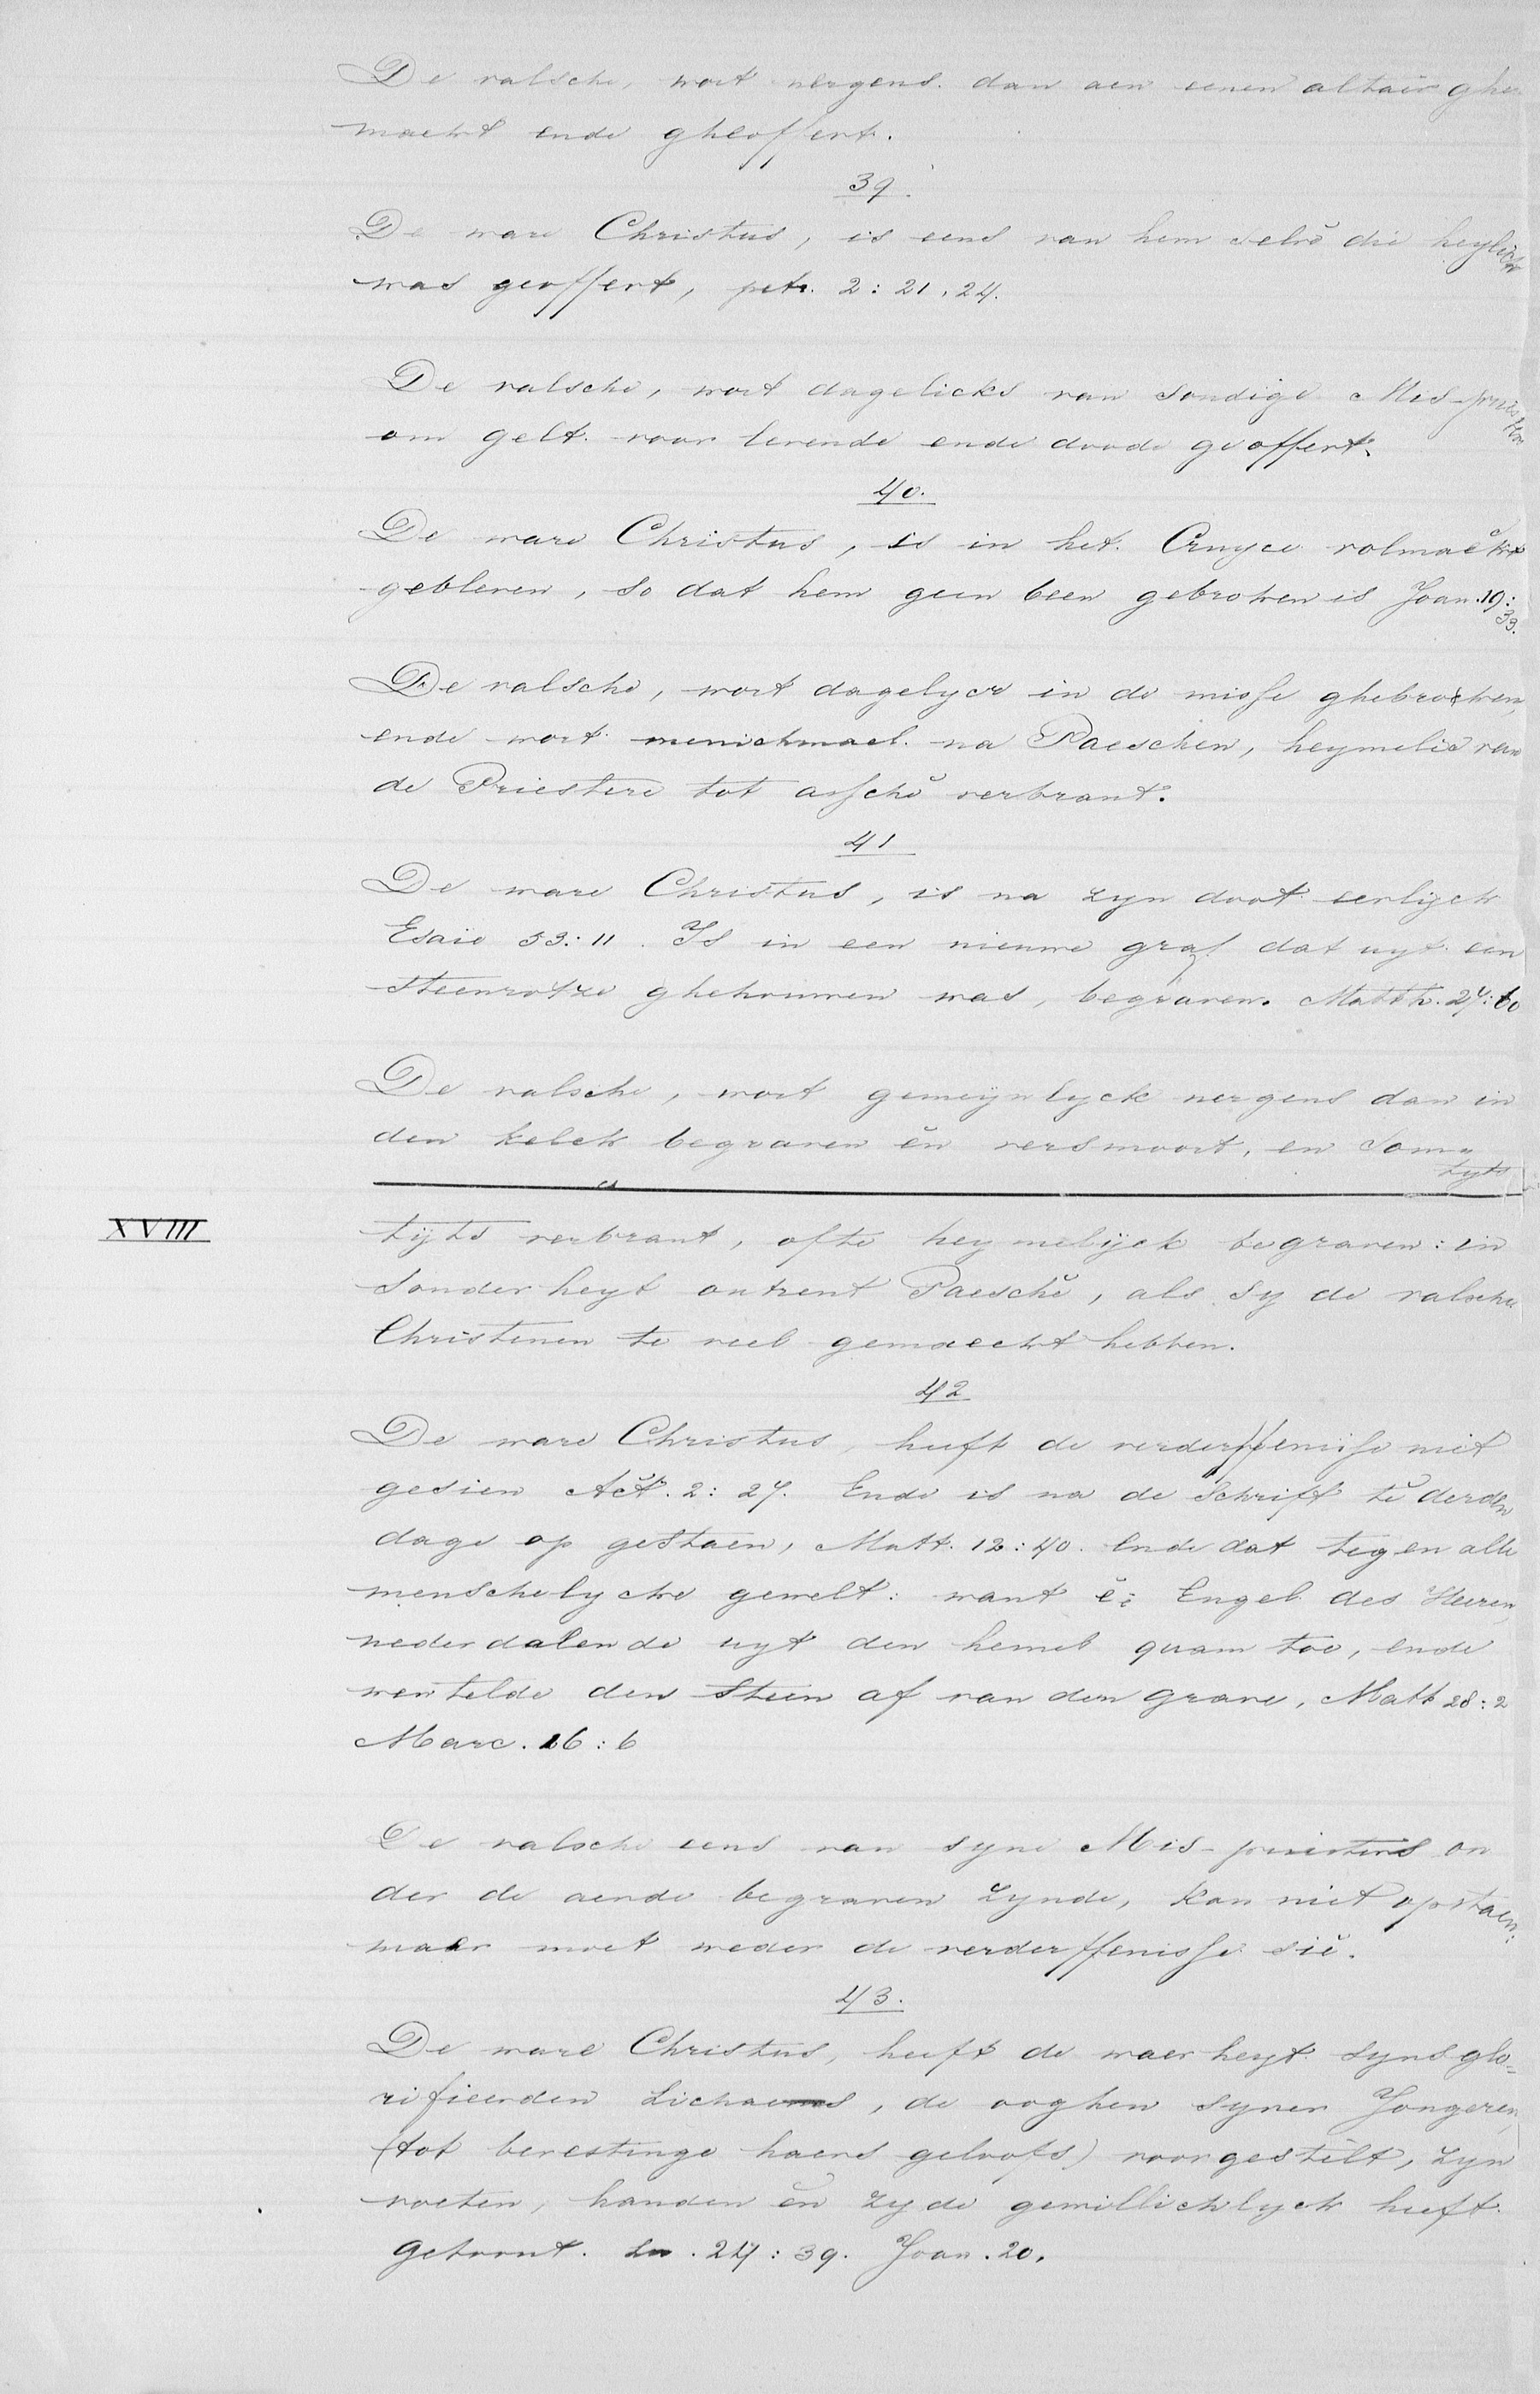 De valsche, wort nergens dan aen eenen altair ghe
maeckt ende gheoffert.
39.
De ware Christus, is eens van hem selvē die heylich
was geoffert, petr. 2: 21, 24.
De valsche, wort dagelicks van sondige Mis-priesters
om gelt voor levende ende doode geoffert.
40.
De ware Christus, is in het Cruyce volmaeckt
gebleven, so dat hem geen been gebroken is Joan. 19:
33.
De valsche, wort dagelycx in de misse ghebroeken,
ende wort menichmael na Paeschen, heymelic van
de Priestere tot asschē verbrant.
41
De ware Christus, is na zyn doot eerlijck
Esaie 53: 11. Is in een nieuwe graf dat uyt een
steenrotze ghehouwen was, begraven. Matth. 27: 60
De valsche, wort gemeynlyck nergens dan in
den kelck begraven ēn versmoort, en som=
tyts
XVIII
tijts verbrant, ofte heymelijck begraven: in
sonderheyt ontrent Paeschē, als sy de valsche
Christenen te veel gemaeckt hebben.
42
De ware Christus, heeft de verderffenisse niet
gesien Act. 2: 27. Ende is na de Schrift tē derden
dage op gestaen, Matt. 12: 40. Ende dat tegen alle
menschelycke gewelt: want ē: Engel des Heeren,
nederdalende uyt den hemel quam toe, ende
wentelde den Steen af van den grave, Matt 28: 2
Marc. 16: 6
De valsche eens van syne Mis-priesters on
der de aerde begraven zynde, kan niet opstaen:
maer moet weder de verderffenisse siē.
43.
De ware Christus, heeft de waerheyt syns glo=
rifieerden Lichaems, de ooghen syner Jongeren,
(tot bevestinge haers geloofs) voorgestelt, zyn
voeten, handen ēn zyde gewillichlyck heeft
getoont. Lu. 24: 39. Joan. 20.